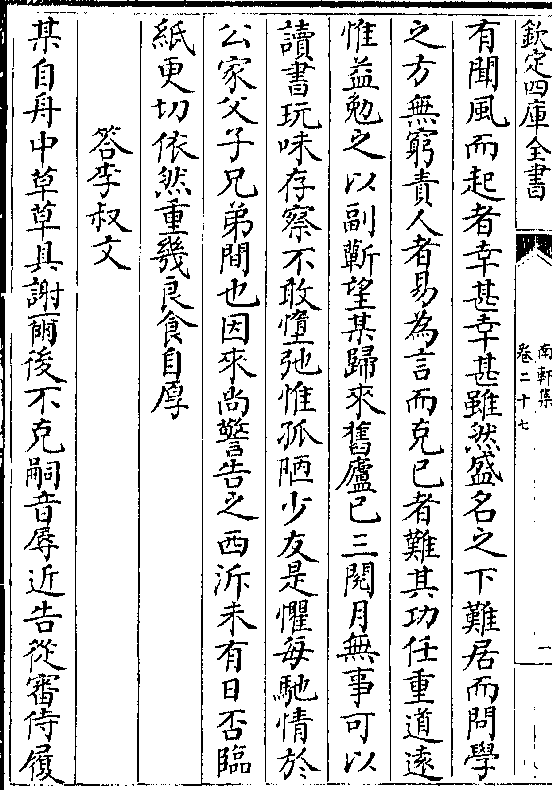 欽定四庫全書
南軒集
卷二十七
一
有聞風而起者幸甚幸甚雖然盛名之下難居而問學
之方無窮責人者易為言而克己者難其功任重道逺
惟益勉之以副蘄望某歸來舊廬已三閱月無事可以
讀書玩味存察不敢惰弛惟孤陋少友是懼每馳情於
公家父子兄弟間也因來尚警告之西泝未有日否臨
紙更切依然重幾良食自厚
答李叔文
某自舟中草草具謝爾後不克嗣音辱近告從審侍履